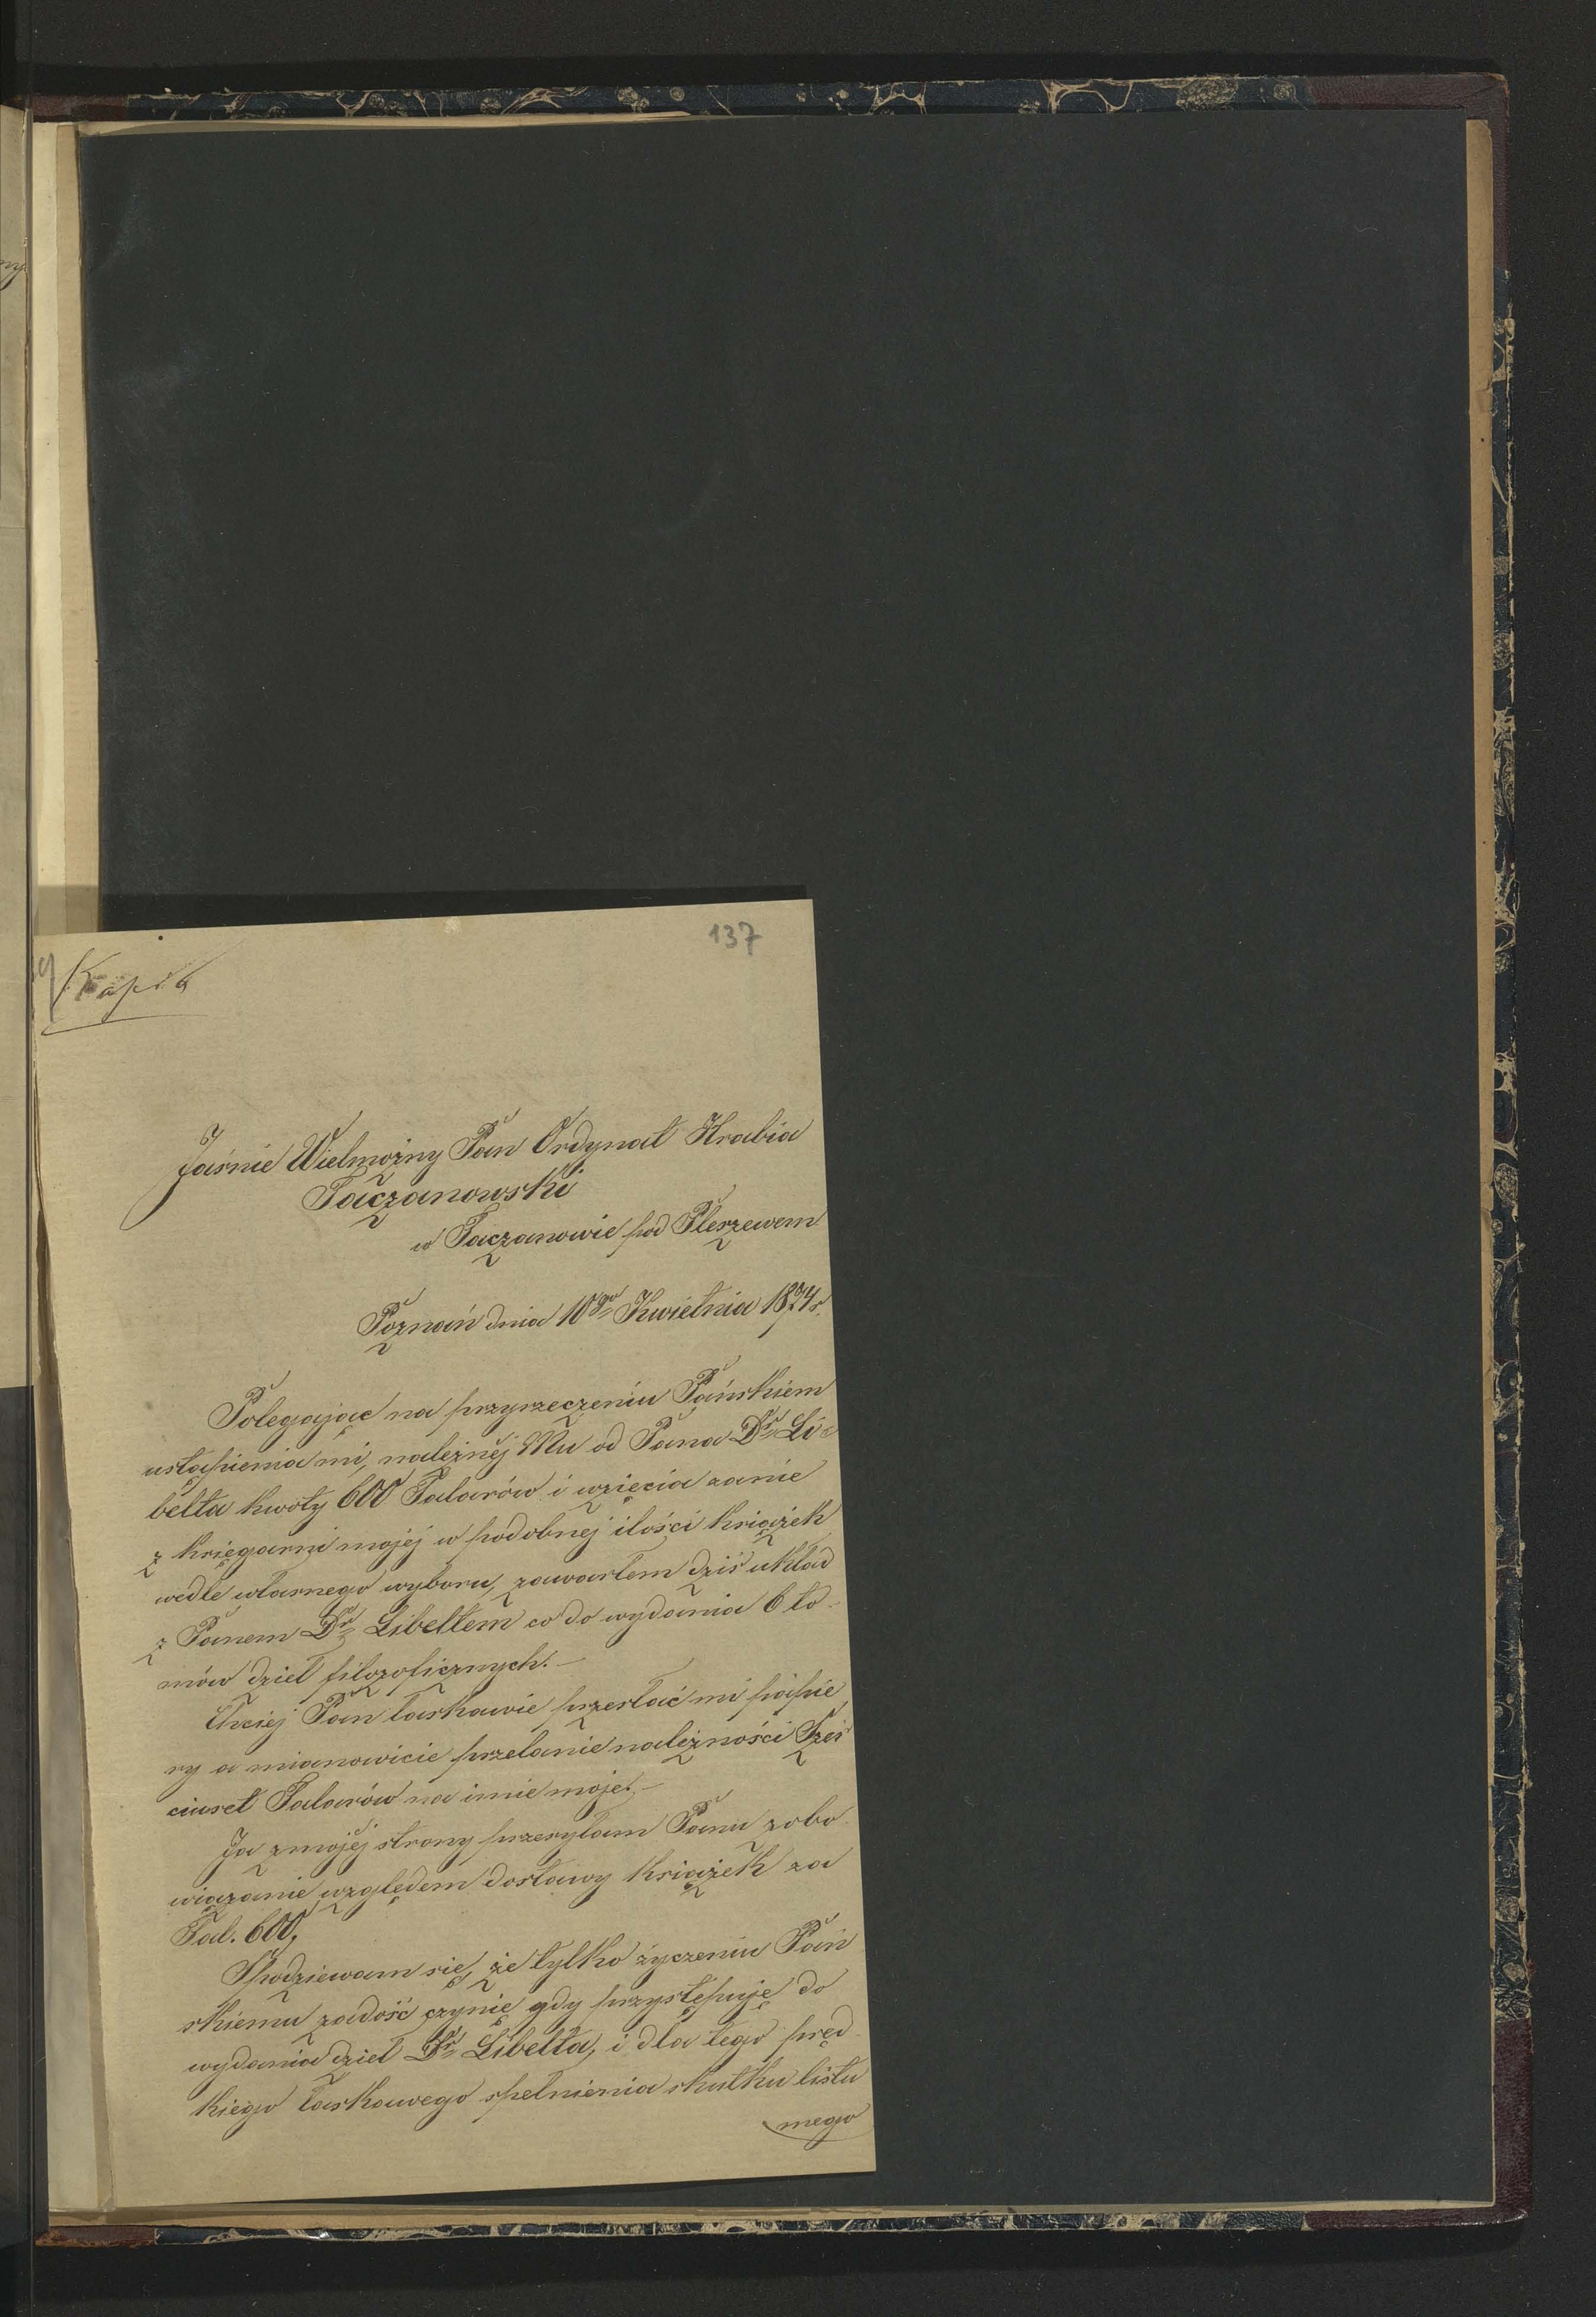 137
Kopia
Jaśnie Wielmożny Pan Ordynat Hrabia
Taczanowski
w Taczanowie pod Pleszewem
Poznań dnia 10go Kwietnia 1874r.
Polegając na przyrzeczeniu Pańskiem
ustąpienia mi, należnéj Mu od Pana Dr Li=
belta kwoty 600 Talarów i wzięcia zanie
z księgarni mojéj w podobnej ilości książek
wedle własnego wyboru, zawarłem dziś układ
z Panem Dr Libeltem co do wydania 6 to-
mów dzieł filozoficznych.—
Chciej Pan łaskawie przesłać mi papie
ry a mianowicie przelanie należności Sześ
ciuset Talarów na imie moje.—
Ja z mojéj strony przesyłam Panu zobo
wiązanie względem dostawy książek za
Tal. 600,
Spodziewam się, że tylko życzeniu Pań
skiemu zadość czynię gdy przystępuję do
wydania dzieł Dr Libelta, i dla tego pręd
kiego łaskawego spełnienia skutku listu
mego